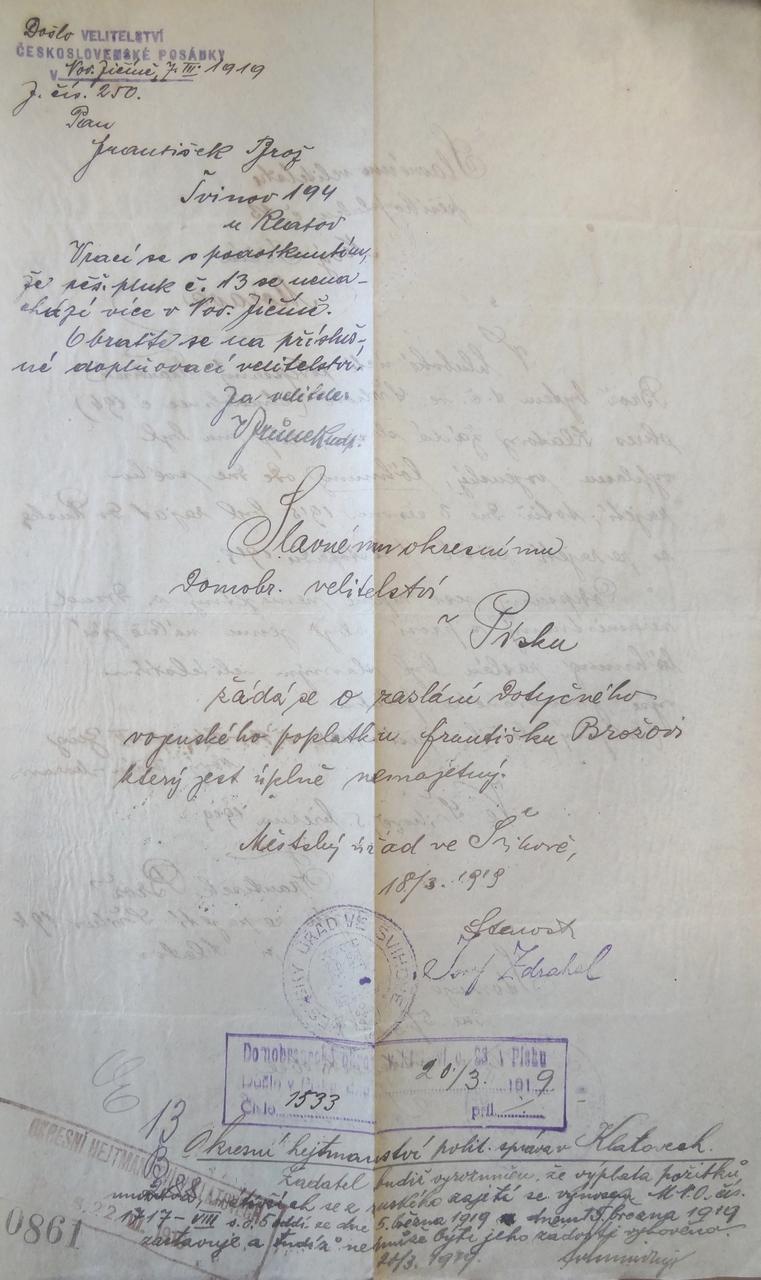 Došlo VELITELSTVÍ
ČESKOSLOVENSKÉ POSÁDKY
V Nov. Jičíně, 7. III. 1919
J. čís. 250.
Pan
František Brož
Švihov 194
u Klatov
Vrací se s podotknutím,
že pěš. pluk č. 13 se nena-
chází více v Nov. Jičíně.
Obraťte se na přísluš-
né doplňovací velitelství.
Za velitele
Slavnému okresnímu
Domobr. velitelství
v Písku
žádá se o zaslání dotyčného
vojenského poplatku Františku Brožovi
který jest úplně nemajetný.
Městský úřad ve Švihově,
18/3. 1919
Starosta
Josef Zdrahal
ÚŘAD VE ŠVIHOVĚ
Domobranecké v Písku
Došlo v Písku dne 20/3. 1919
Číslo 1533 příl.
13
Okresní hejtmanství polit. správa v Klatovech.
Žadatel budiž vyrozuměn, že výplata požitků
se z ruského zajetí se výnosem M.N.O. čís.
1717-VIII s. g. 5 odděl. ze dne 5. března 1919 dnem 15. března 1919
zastavuje a tudíž nemůže býti jeho žádosti vyhověno.
20/3. 1919.
OKRESNÍ HEJTMANSTVÍ
0861